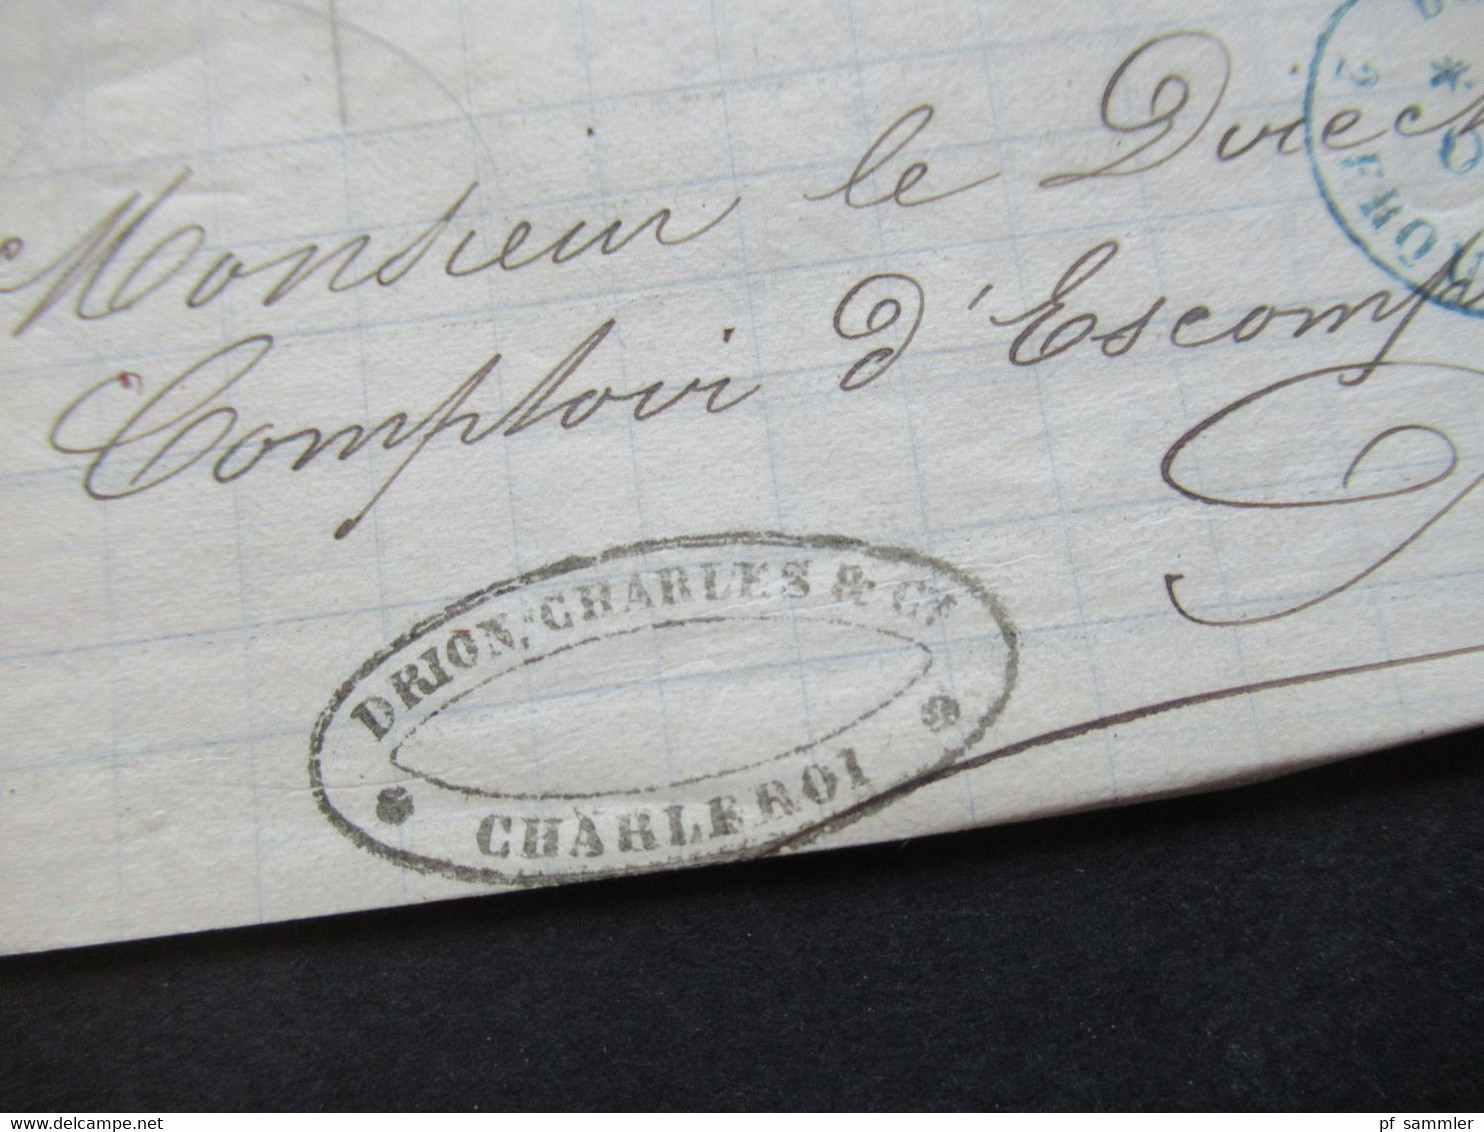 Monsieur le Direct
Comptoir d'Escomp
DRION, CHARLES & Cᴵᴱ
CHARLEROI
2
delcampe.net
pf_sammler